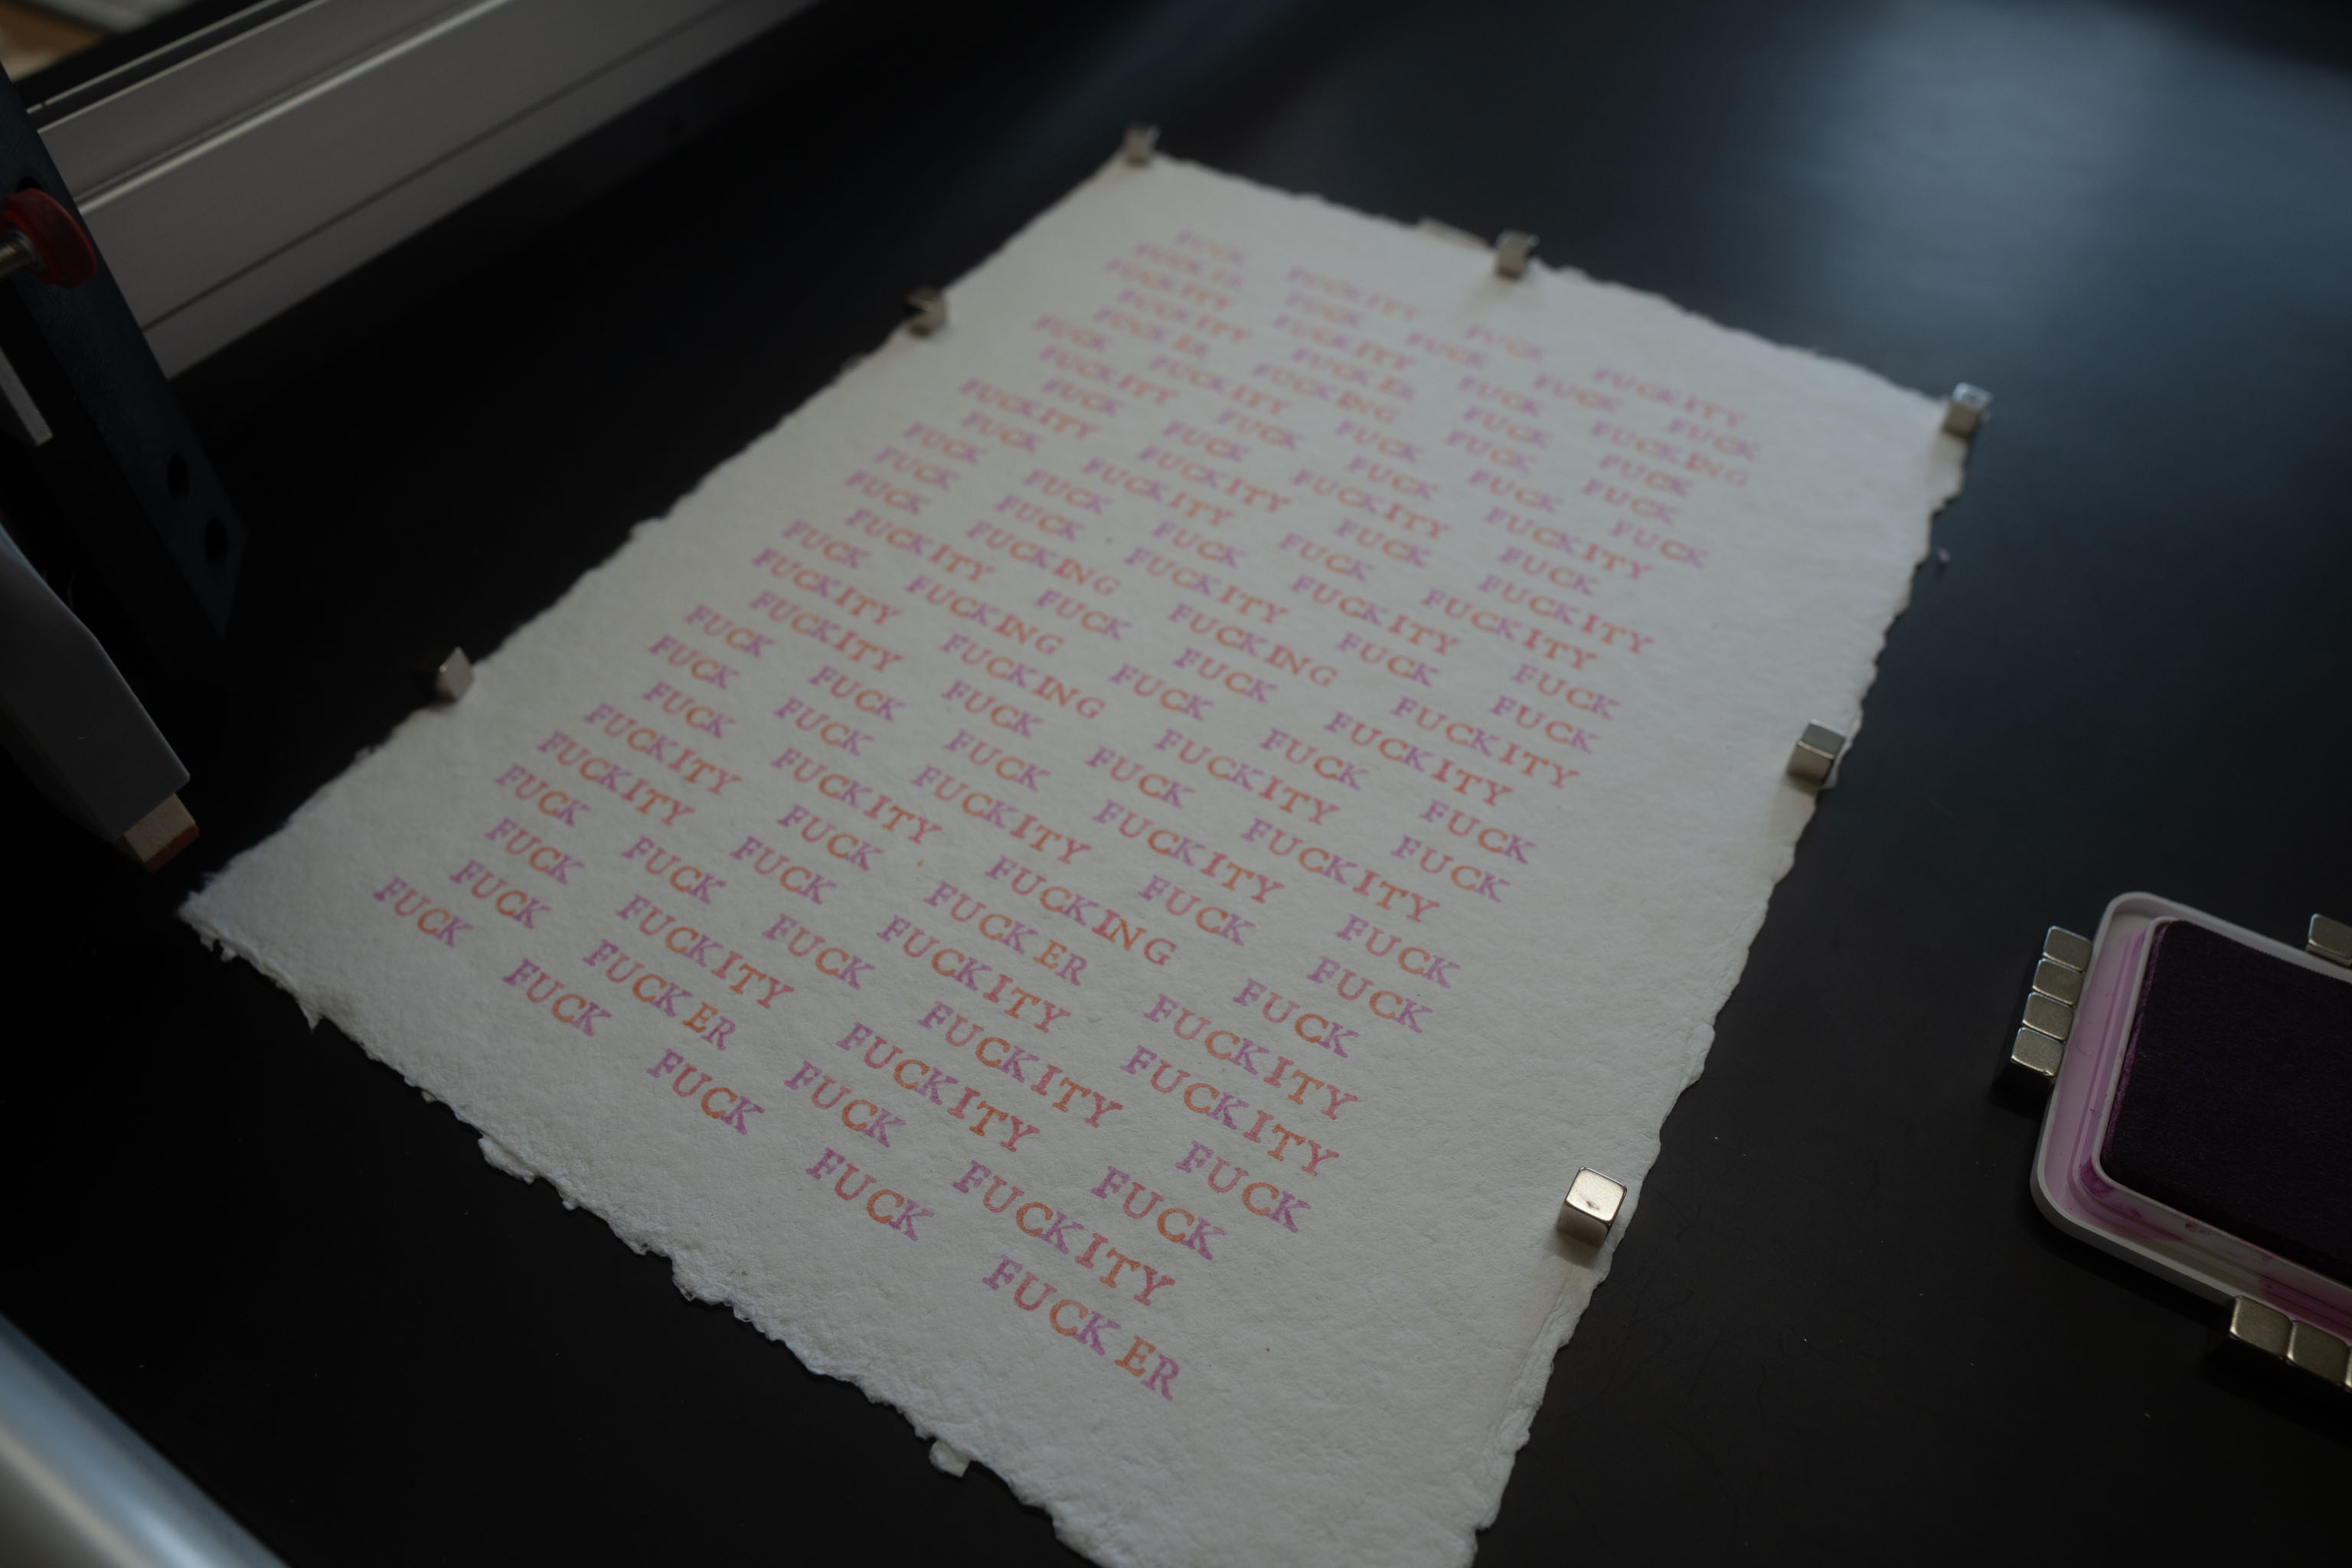 FUCK FUCKITY FUCK FUCKITY
FUCKER FUCK FUCK FUCK FUCK
FUCKITY FUCKITY FUCK FUCKING
FUCKITY FUCKER FUCK FUCK
FUCKER FUCKING FUCK FUCK
FUCK FUCKITY FUCK FUCK FUCK
FUCKITY FUCK FUCK FUCKITY
FUCK FUCK FUCKITY FUCK
FUCKITY FUCKITY FUCK FUCKITY
FUCK FUCKITY FUCK FUCKITY
FUCK FUCK FUCK FUCKITY FUCK
FUCK FUCK FUCKITY FUCK FUCK
FUCK FUCKING FUCKING FUCKITY
FUCKITY FUCK FUCK FUCKITY
FUCK FUCKING FUCK FUCK FUCK
FUCKITY FUCKING FUCKITY FUCK
FUCKITY FUCK FUCK FUCKITY
FUCK FUCK FUCK FUCKITY FUCK
FUCK FUCK FUCKITY FUCK FUCK
FUCK FUCKITY FUCKING FUCK
FUCKITY FUCK FUCKER FUCKITY
FUCKITY FUCK FUCKITY FUCKITY
FUCK FUCK FUCK FUCKITY FUCK
FUCK FUCKITY FUCKITY FUCK
FUCK FUCKER FUCK FUCKITY
FUCK FUCK FUCK FUCK FUCKER